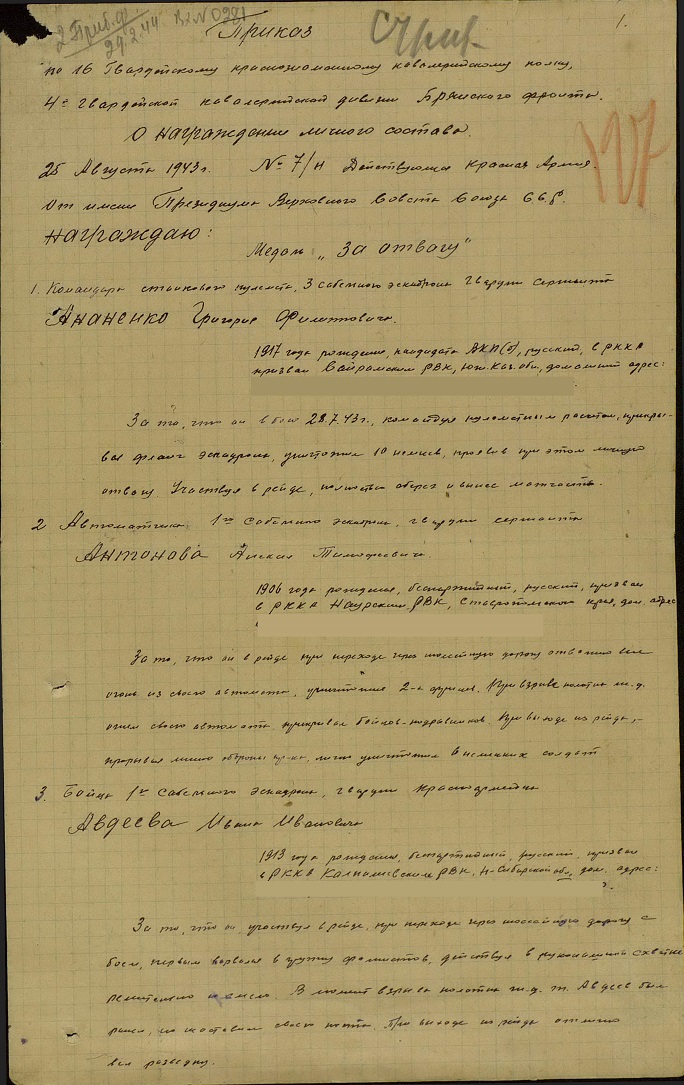 2 Приб. ф.
29.2.44 Вх № 0281
1.
Приказ
по 16 Гвардейскому краснознаменному кавалерийскому полку,
4й гвардейской кавалерийской дивизии Брянского фронта.
О награждении личного состава.
25 Августа 1943 г. № 7/н Действующая Красная Армия.
От имени Президиума Верховного Совета Союза С.С.Р.
награждаю:
Медаль „За отвагу"
1. Командира станкового пулемета, 3 сабельного эскадрона гвардии сержанта
Ананенко Григория Филипповича.
1917 года рождения, кандидата ВКП(б), русский, в РККА
призван Сайрамским РВК, Юж. Каз. обл., домашний адрес:
За то, что он в бою 28.7.43 г., командуя пулеметным расчетом, прикры-
вая фланг эскадрона, уничтожил 10 немцев, проявив при этом личную
отвагу. Участвуя в рейде, полностью сберег и вынес матчасть.
2 Автоматчика 1го сабельного эскадрона, гвардии сержанта
Антонова Тимофеевича.
1906 года рождения, беспартийный, русский, призван
в РККА Наурским РВК, Ставропольского края, дом. адрес
За то, что он в рейде при переходе через шоссейную дорогу отлично вел
огонь из своего автомата, уничтожив 2-х фрицев. При взрыве полотна ж.д.
огнем своего автомата прикрывал бойцов-подрывников. При выходе из рейда,
прорывая линию обороны пр-ка, лично уничтожил немецких солдат
3. Бойца 1го Сабельного эскадрона, гвардии красноармейца
Авдеева Ивана Ивановича
1913 года рождения, беспартийный, русский, призван
в РККА РВК, Н-Сибирской обл, дом. адрес:
За то, что он, участвуя в рейде, при переходе через шоссейную дорогу с
боем, первым ворвался в группу фашистов, действуя в рукопашной схватке
решительно и смело. В момент взрыва полотна ж.д. т. Авдеев был
ранен, но не оставил своего поста. При выходе из рейда отлично
вел разведку.